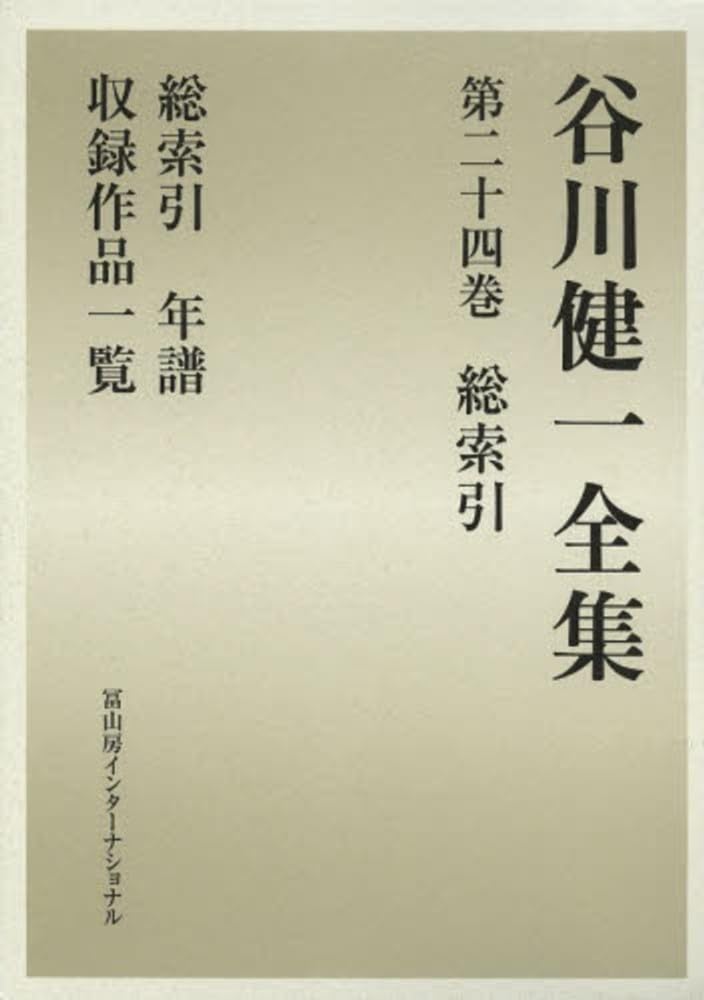 谷川健一全集
第二十四巻 総索引
総索引 年譜
収録作品一覧
冨山房インターナショナル